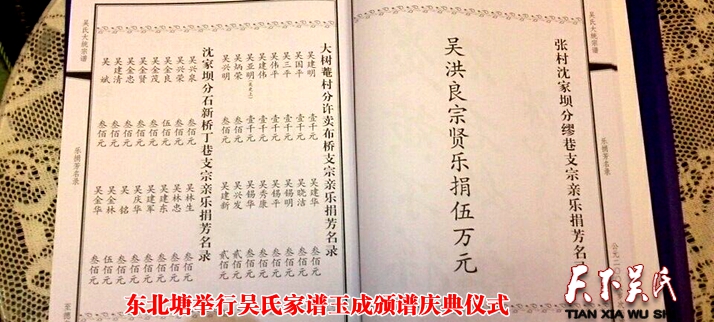 吴氏大统宗谱
乐捐芳名录
公元二〇
张村沈家坝分缪巷支宗亲乐捐芳名
吴洪良宗贤乐捐伍万元
大树菴村分许卖布桥支宗亲乐捐芳名录
吴建明 壹千元 吴建华 叁佰元
吴国平 壹千元 吴晓洁 叁佰元
吴三平 壹千元 吴锡明 叁佰元
吴伟平 壹千元 吴锡平 叁佰元
吴建伟 壹千元 吴秀康 叁佰元
吴亚明 壹千元 吴锡华 叁佰元
吴炳荣 叁佰元 吴兴发 贰佰元
吴兴明 叁佰元 吴建新 贰佰元
沈家坝分石新桥丁巷支宗亲乐捐芳名录
吴兴泉 叁佰元 吴林生 叁佰元
吴兴荣 叁佰元 吴林忠 叁佰元
吴金良 伍佰元 吴建东 叁佰元
吴金茂 叁佰元 吴建军 叁佰元
吴金贤 叁佰元 吴庆华 叁佰元
吴金忠 叁佰元 吴铭 叁佰元
吴建清 叁佰元 吴金林 伍佰元
吴斌 叁佰元 吴金华 叁佰元
吴氏大统宗谱
乐捐芳名录
东北塘举行吴氏家谱玉成颁谱庆典仪式
天下吴氏
TIAN XIA WU SHI